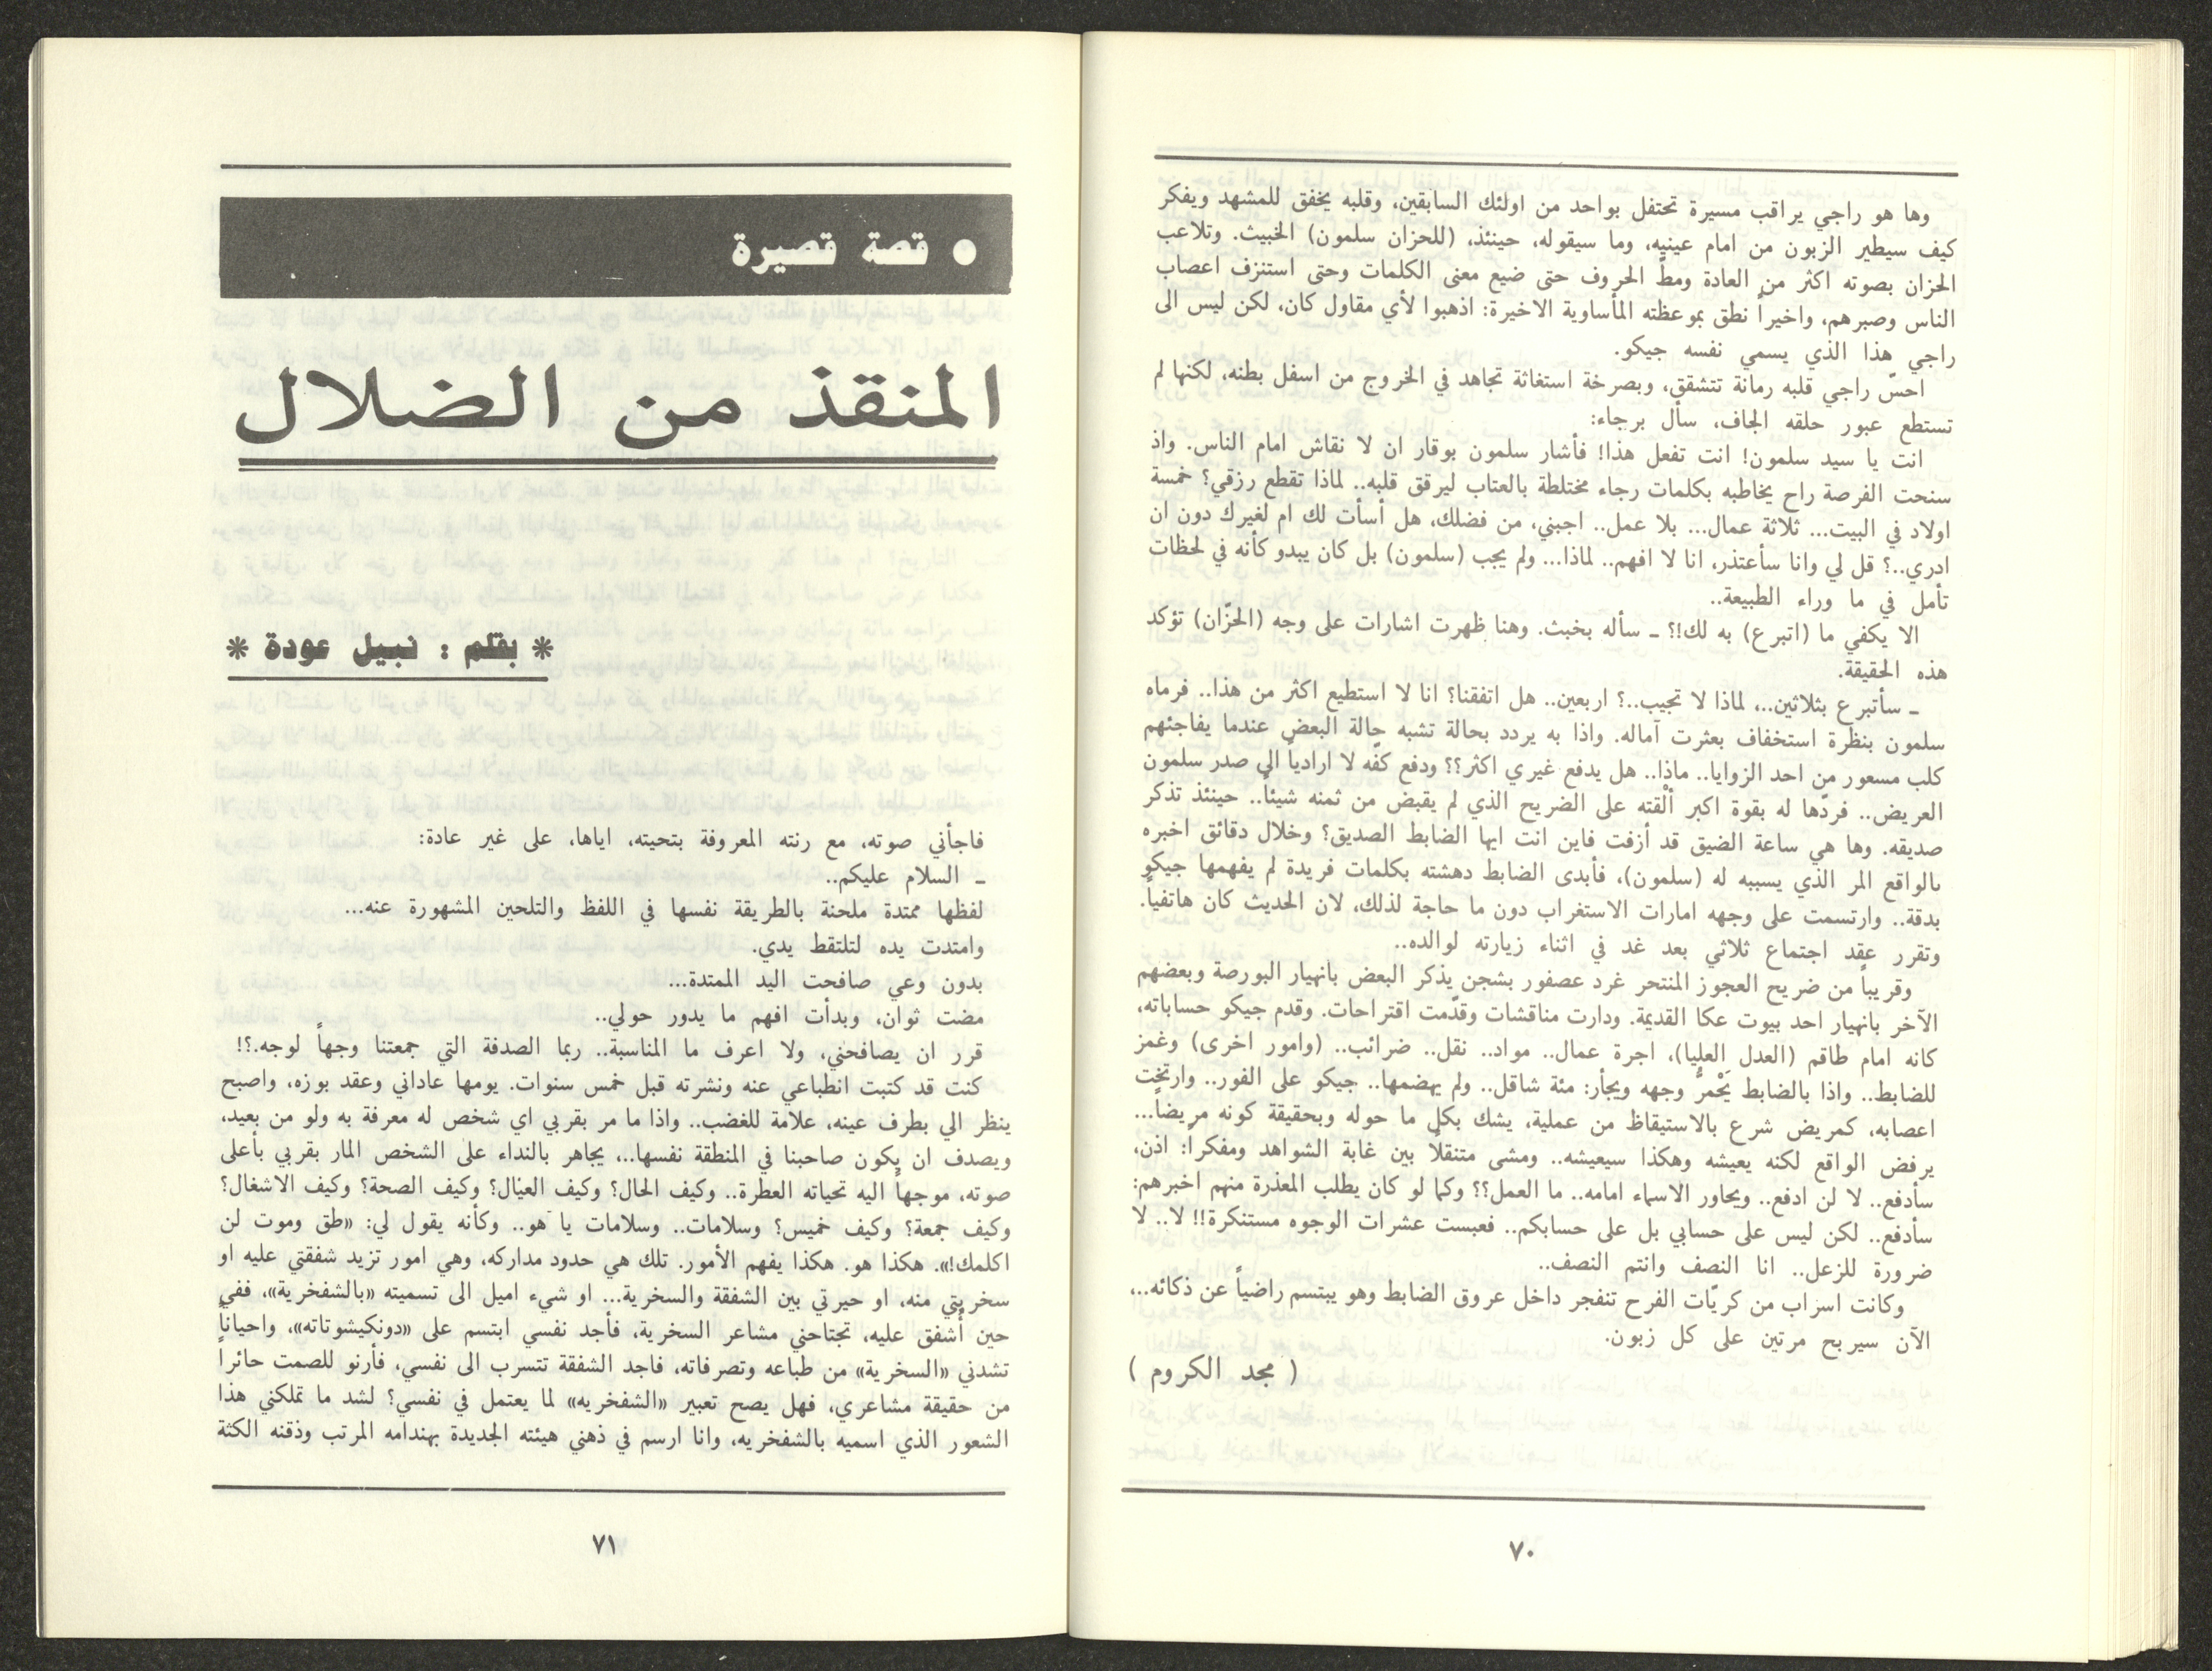 وها هو راجي يراقب مسيرة تحتفل بواحد من اولئك السابقين، وقلبه يخفق للمشهد ويفكر
كيف سيطير الزبون من امام عينيه، وما سيقوله، حينئذ، (للحزان سلمون) الخبيث. وتلاعب
الحزان بصوته اكثر من العادة ومطّ الحروف حتى ضيع معنى الكلمات وحتى استنزف اعصاب
الناس وصبرهم، واخيراً نطق بموعظته المأساوية الاخيرة: اذهبوا لأي مقاول كان، لكن ليس الى
راجي هذا الذي يسمي نفسه جيكو.
احسّ راجي قلبه رمانة تتشقق، وبصرخة استغاثة تجاهد في الخروج من اسفل بطنه، لكنها لم
تستطع عبور حلقه الجاف، سأل برجاء:
انت يا سيد سلمون! انت تفعل هذا! فأشار سلمون بوقار ان لا نقاش امام الناس. واذ
سنحت الفرصة راح يخاطبه بكلمات رجاء مختلطة بالعتاب ليرقق قلبه.. لماذا تقطع رزقي؟ خمسة
اولاد في البيت... ثلاثة عمال... بلا عمل.. اجبني، من فضلك، هل أسأت لك ام لغيرك دون ان
ادري..؟ قل لي وانا سأعتذر، انا لا افهم.. لماذا... ولم يجب (سلمون) بل كان يبدو كأنه في لحظات
تأمل في ما وراء الطبيعة..
الا يكفي ما (اتبرع) به لك!؟ ـ سأله بخبث. وهنا ظهرت اشارات على وجه (الحزّان) تؤكد
هذه الحقيقة.
ـ سأتبرع بثلاثين..، لماذا لا تجيب..؟ اربعين.. هل اتفقنا؟ انا لا استطيع اكثر من هذا.. فرماه
سلمون بنظرة استخفاف بعثرت آماله. واذا به يردد بحالة تشبه حالة البعض عندما يفاجئهم
كلب مسعور من احد الزوايا.. ماذا.. هل يدفع غيري اكثر؟؟ ودفع كفّه لا ارادياً الى صدر سلمون
العريض.. فردّها له بقوة اكبر ألْقته على الضريح الذي لم يقبض من ثمنه شيئاً.. حينئذ تذكر
صديقه. وها هي ساعة الضيق قد أزفت فاين انت ايها الضابط الصديق؟ وخلال دقائق اخبره
بالواقع المر الذي يسببه له (سلمون)، فأبدى الضابط دهشته بكلمات فريدة لم يفهمها جيكو
بدقة.. وارتسمت على وجهه امارات الاستغراب دون ما حاجة لذلك، لان الحديث كان هاتفياً.
وتقرر عقد اجتماع ثلاثي بعد غد في اثناء زيارته لوالده..
وقريباً من ضريح العجوز المنتحر غرد عصفور بشجن يذكر البعض بانهيار البورصة وبعضهم
الآخر بانهيار احد بيوت عكا القديمة. ودارت مناقشات وقدّمت اقتراحات. وقدم جيكو حساباته،
كانه امام طاقم (العدل العليا)، اجرة عمال.. مواد.. نقل.. ضرائب.. (وامور اخرى) وغمز
للضابط.. واذا بالضابط يَحْمرُّ وجهه ويجأر: مئة شاقل.. ولم يهضمها.. جيكو على الفور.. وارتخت
اعصابه، كمريض شرع بالاستيقاظ من عملية، يشك بكل ما حوله وبحقيقة كونه مريضاً...
يرفض الواقع لكنه يعيشه وهكذا سيعيشه.. ومشى متنقلاً بين غابة الشواهد ومفكراً: اذن،
سأدفع.. لا لن ادفع.. ويحاور الاسماء امامه.. ما العمل؟؟ وكما لو كان يطلب المعذرة منهم اخبرهم:
سأدفع.. لكن ليس على حسابي بل على حسابكم.. فعبست عشرات الوجوه مستنكرة!! لا.. لا
ضرورة للزعل.. انا النصف وانتم النصف..
وكانت اسراب من كريّات الفرح تنفجر داخل عروق الضابط وهو يبتسم راضياً عن ذكائه..،
الآن سيربح مرتين على كل زبون.
( مجد الكروم )
٧٠
● قصة قصيرة
المنقذ من الضلال
* بقلم : نبيل عودة *
فاجأني صوته، مع رنته المعروفة بتحيته، اياها، على غير عادة:
ـ السلام عليكم..
لفظها ممتدة ملحنة بالطريقة نفسها في اللفظ والتلحين المشهورة عنه...
وامتدت يده لتلتقط يدي.
بدون وعي صافحت اليد الممتدة...
مضت ثوان، وبدأت افهم ما يدور حولي..
قرر ان يصافحني، ولا اعرف ما المناسبة.. ربما الصدفة التي جمعتنا وجهاً لوجه.؟!
كنت قد كتبت انطباعي عنه ونشرته قبل خمس سنوات. يومها عاداني وعقد بوزه، واصبح
ينظر الي بطرف عينه، علامة للغضب.. واذا ما مر بقربي اي شخص له معرفة به ولو من بعيد،
ويصدف ان يكون صاحبنا في المنطقة نفسها..، يجاهر بالنداء على الشخص المار بقربي بأعلى
صوته، موجهاً اليه تحياته العطرة.. وكيف الحال؟ وكيف العيال؟ وكيف الصحة؟ وكيف الاشغال؟
وكيف جمعة؟ وكيف خميس؟ وسلامات.. وسلامات يا هو.. وكأنه يقول لي: «طق وموت لن
اكلمك!». هكذا هو. هكذا يفهم الأمور. تلك هي حدود مداركه، وهي امور تزيد شفقتي عليه او
سخريتي منه، او حيرتي بين الشفقة والسخرية... او شيء اميل الى تسميته «بالشفخرية»، ففي
حين أشفق عليه، تجتاحني مشاعر السخرية، فأجد نفسي ابتسم على «دونكيشوتاته»، واحياناً
تشدني «السخرية» من طباعه وتصرفاته، فاجد الشفقة تتسرب الى نفسي، فأرنو للصمت حائراً
من حقيقة مشاعري، فهل يصح تعبير «الشفخريه» لما يعتمل في نفسي؟ لشد ما تملكني هذا
الشعور الذي اسميه بالشفخريه، وانا ارسم في ذهني هيئته الجديدة بهندامه المرتب وذقنه الكثة
٧١